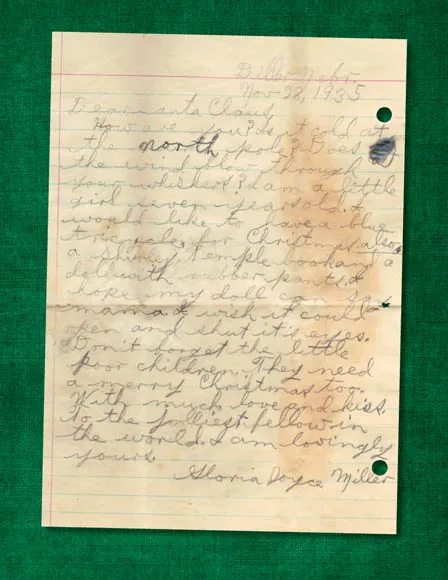 Diller Nebr.
Nov 22, 1935
Dear santa Claus,
How are you? Is it cold at
the north pole? Does
the wind blow through
your whiskers? I am a little
girl seven years old. I
would like to have a blue
tricycle for Christmas also
a shirley temple book and a
doll with rubber pants. I
hope my doll can say
mama. I wish it could
open and shut it's eyes.
Don't forget the little
poor children. They need
a merry Christmas too.
With much love and kiss.
To the jolliest fellow in
the world. I am lovingly
yours.
Gloria Joyce Miller